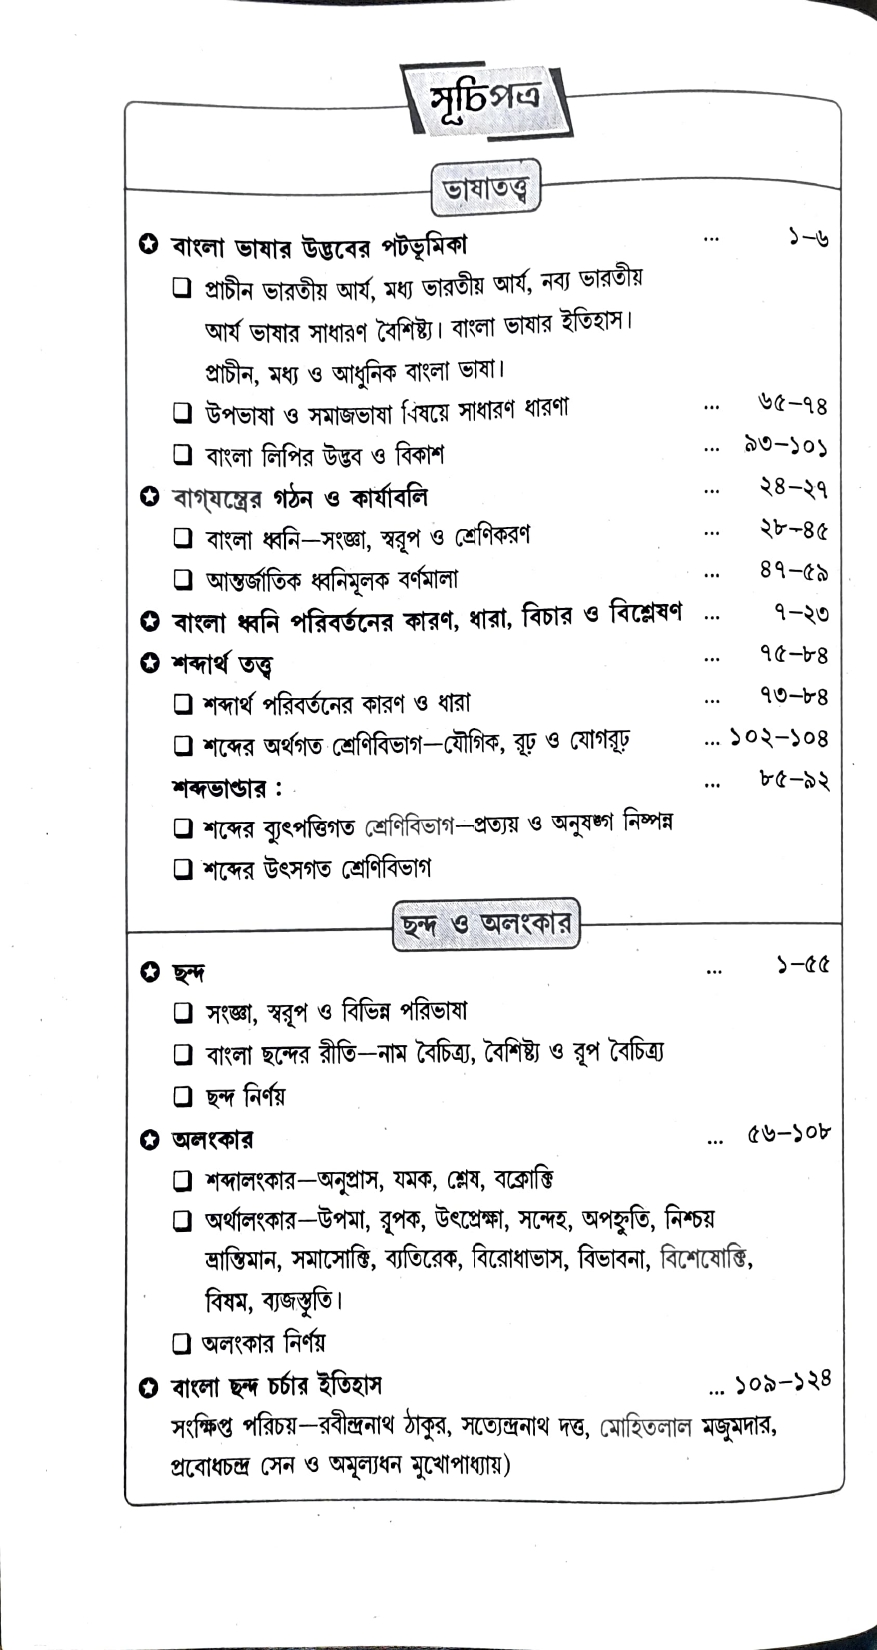 সূচিপত্র
ভাষাতত্ত্ব
✪ বাংলা ভাষার উদ্ভবের পটভূমিকা ... ১—৬
❑ প্রাচীন ভারতীয় আর্য, মধ্য ভারতীয় আর্য, নব্য ভারতীয়
আর্য ভাষার সাধারণ বৈশিষ্ট্য। বাংলা ভাষার ইতিহাস।
প্রাচীন, মধ্য ও আধুনিক বাংলা ভাষা।
❑ উপভাষা ও সমাজভাষা বিষয়ে সাধারণ ধারণা ... ৬৫—৭৪
❑ বাংলা লিপির উদ্ভব ও বিকাশ ... ৯৩—১০১
✪ বাগ্‌যন্ত্রের গঠন ও কার্যাবলি ... ২৪—২৭
❑ বাংলা ধ্বনি—সংজ্ঞা, স্বরূপ ও শ্রেণিকরণ ... ২৮—৪৫
❑ আন্তর্জাতিক ধ্বনিমূলক বর্ণমালা ... ৪৭—৫৯
✪ বাংলা ধ্বনি পরিবর্তনের কারণ, ধারা, বিচার ও বিশ্লেষণ ... ৭—২৩
✪ শব্দার্থ তত্ত্ব ... ৭৫—৮৪
❑ শব্দার্থ পরিবর্তনের কারণ ও ধারা ... ৭৩—৮৪
❑ শব্দের অর্থগত শ্রেণিবিভাগ—যৌগিক, রূঢ় ও যোগরূঢ় ... ১০২—১০৪
শব্দভাণ্ডার : ... ৮৫—৯২
❑ শব্দের ব্যুৎপত্তিগত শ্রেণিবিভাগ—প্রত্যয় ও অনুষঙ্গ নিষ্পন্ন
❑ শব্দের উৎসগত শ্রেণিবিভাগ
ছন্দ ও অলংকার
✪ ছন্দ ... ১—৫৫
❑ সংজ্ঞা, স্বরূপ ও বিভিন্ন পরিভাষা
❑ বাংলা ছন্দের রীতি—নাম বৈচিত্র্য, বৈশিষ্ট্য ও রূপ বৈচিত্র্য
❑ ছন্দ নির্ণয়
✪ অলংকার ... ৫৬—১০৮
❑ শব্দালংকার—অনুপ্রাস, যমক, শ্লেষ, বক্রোক্তি
❑ অর্থালংকার—উপমা, রূপক, উৎপ্রেক্ষা, সন্দেহ, অপহ্নুতি, নিশ্চয়
ভ্রান্তিমান, সমাসোক্তি, ব্যতিরেক, বিরোধাভাস, বিভাবনা, বিশেষোক্তি,
বিষম, ব্যজস্তুতি।
❑ অলংকার নির্ণয়
✪ বাংলা ছন্দ চর্চার ইতিহাস ... ১০৯—১২৪
সংক্ষিপ্ত পরিচয়—রবীন্দ্রনাথ ঠাকুর, সত্যেন্দ্রনাথ দত্ত, মোহিতলাল মজুমদার,
প্রবোধচন্দ্র সেন ও অমূল্যধন মুখোপাধ্যায়)